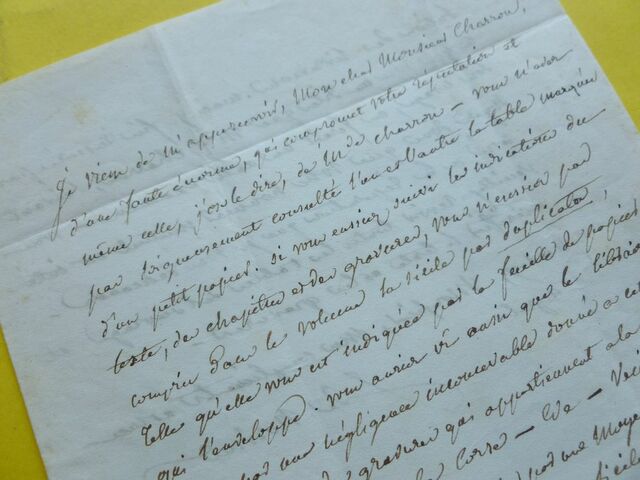 Je viens de m'appercevoir, Mon cher Monsieur Charron,
d'une faute énorme, qui compromet votre réputation et
même celle, j'ose le dire, de Mde Charron - vous n'avez
pas soigneusement consulté l'une et l'autre la table marquée
d'un petit papier. si vous eussiez suivi les indications du
texte, des chapitres et des gravures, vous n'eussiez pas
compris dans le volume la sicile par duplicata,
telle qu'elle vous est indiquée par la feuille de papier
qui l'enveloppe. vous auriez vu aussi que le
par une négligence inconcevable donné a
gravures qui appartiennent a la
la Corse
par une